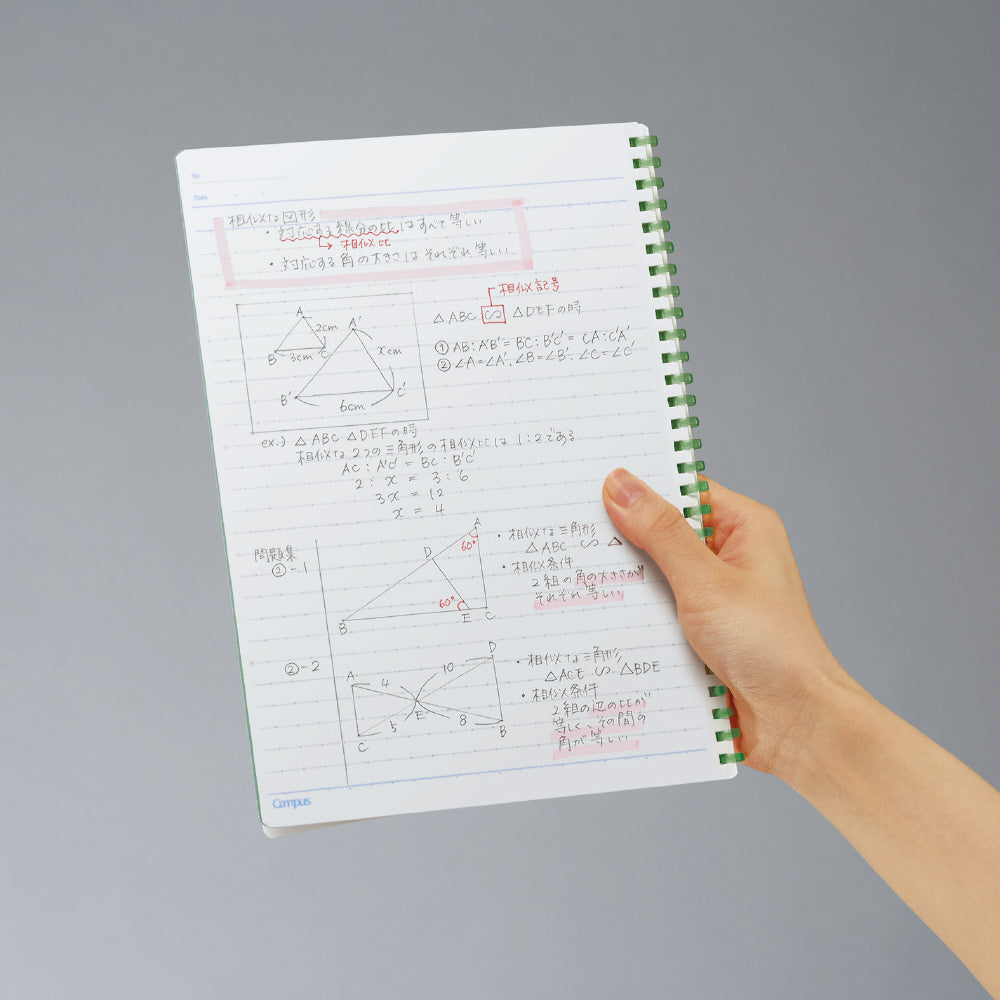 No.
Date
相似な図形
・対応する線分の比はすべて等しい
→ 相似比
・対応する角の大きさはそれぞれ等しい
相似記号
△ABC ∽ △DEFの時
① AB:A'B' = BC:B'C' = CA:C'A'
② ∠A=∠A', ∠B=∠B', ∠C=∠C'
A
2cm
B
3cm
C
A'
xcm
B'
6cm
C'
ex.) △ABC △DEFの時
相似な2つの三角形の相似比は1:2である
AC:A'C' = BC:B'C'
2:x = 3:6
3x = 12
x = 4
問題集
②-1
A
60°
D
60°
B
E
C
・相似な三角形
△ABC ∽ △
・相似条件
2組の角の大きさが
それぞれ等しい
②-2
A
4
10
D
E
5
8
C
B
・相似な三角形
△ACE ∽ △BDE
・相似条件
2組の辺の比が
等しく、その間の
角が等しい
Campus